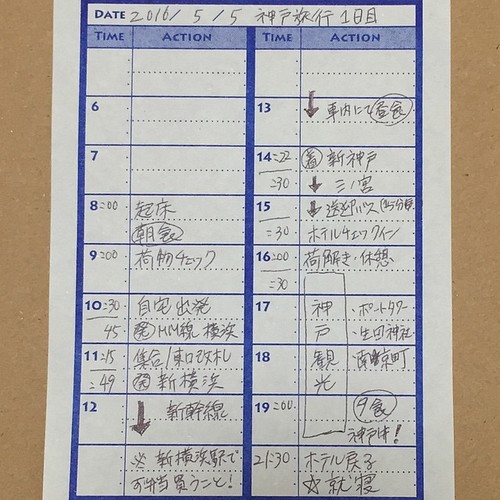 DATE 2016 / 5 / 5 神戸旅行 1日目
TIME ACTION
6
7
8:00 起床
朝食
9:00 荷物チェック
10:30 自宅出発
45 発 MM線 横浜
11:15 集合/東口改札
:49 発 新横浜
12 新幹線
※ 新横浜駅で
お弁当買うこと!
TIME ACTION
13 ↓ 車内にて昼食
14:22 着 新神戸
:30 ↓ 三ノ宮
15 ↓ 送迎バス(15分毎
:30 ホテルチェックイン
16:00 荷解き・休憩
:30
17 神戸観光 ・ポートタワー
・生田神社
18 南京町
19:00 夕食
神戸牛!
21:30 ホテル戻り
就寝